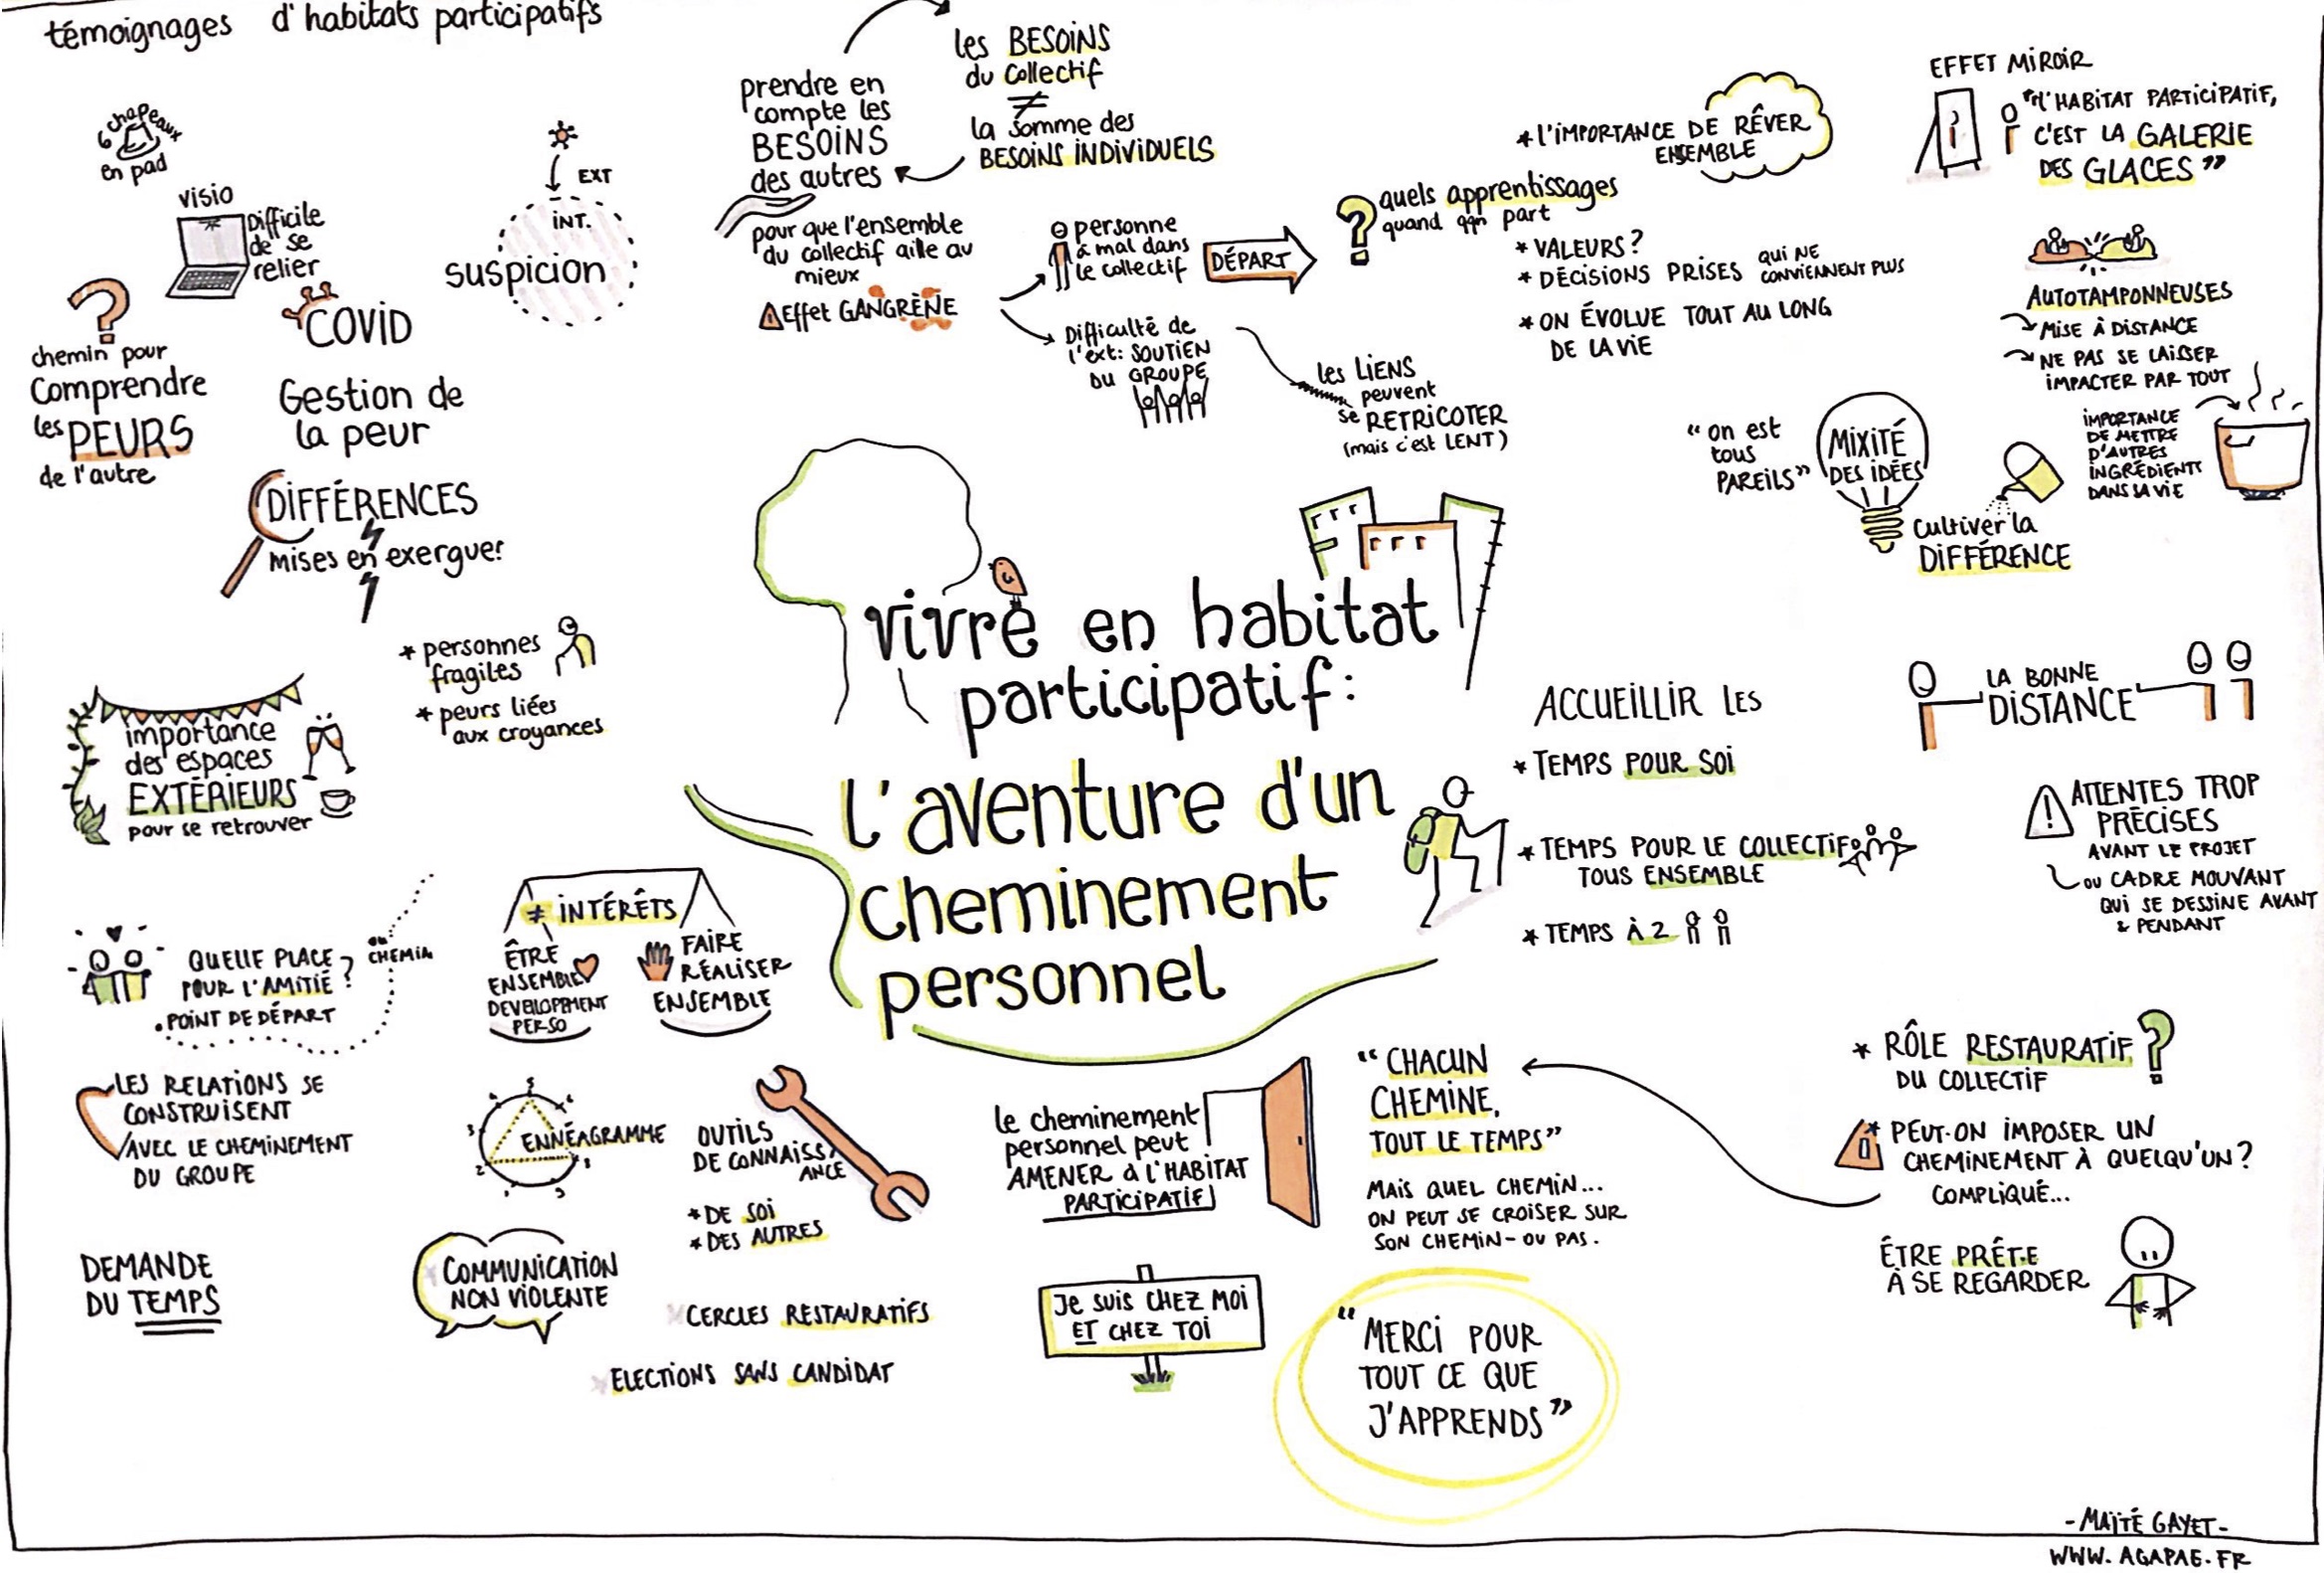 témoignages d'habitats participatifs
6 chapeaux
en pad
visio
Difficile
de se
relier
COVID
Gestion de
la peur
?
chemin pour
comprendre
les PEURS
de l'autre
DIFFÉRENCES
mises en exergue!
* personnes
fragiles
* peurs liées
aux croyances
EXT
INT.
suspicion
prendre en
compte les
BESOINS
des autres
les BESOINS
du collectif
≠
la somme des
BESOINS INDIVIDUELS
pour que l'ensemble
du collectif aille au
mieux
Effet GANGRÈNE
personne
à mal dans
le collectif
DÉPART
Difficulté de
l'ext: SOUTIEN
DU GROUPE
les LIENS
peuvent
se RETRICOTER
(mais c'est LENT)
? quels apprentissages
quand qqn part
* l'IMPORTANCE DE RÊVER
ENSEMBLE
* VALEURS?
* DÉCISIONS PRISES QUI NE
CONVIENNENT PLUS
* ON ÉVOLUE TOUT AU LONG
DE LA VIE
EFFET MIROIR
"l'HABITAT PARTICIPATIF,
C'EST LA GALERIE
DES GLACES"
AUTOTAMPONNEUSES
MISE À DISTANCE
NE PAS SE LAISSER
IMPACTER PAR TOUT
"on est
tous
PAREILS"
MIXITÉ
DES IDÉES
Cultiver la
DIFFÉRENCE
IMPORTANCE
DE METTRE
D'AUTRES
INGRÉDIENTS
DANS SA VIE
vivre en habitat
participatif:
l'aventure d'un
cheminement
personnel
ACCUEILLIR LES
* TEMPS POUR SOI
* TEMPS POUR LE COLLECTIF
TOUS ENSEMBLE
* TEMPS À 2
LA BONNE
DISTANCE
! ATTENTES TROP
PRÉCISES
AVANT LE PROJET
OU CADRE MOUVANT
QUI SE DESSINE AVANT
& PENDANT
importance
des espaces
EXTÉRIEURS
pour se retrouver
QUELLE PLACE
POUR L'AMITIÉ ?
. POINT DE DÉPART
OU
CHEMIN
≠ INTÉRÊTS
ÊTRE
ENSEMBLE
DEVELOPPEMENT
PERSO
FAIRE
RÉALISER
ENSEMBLE
LES RELATIONS SE
CONSTRUISENT
AVEC LE CHEMINEMENT
DU GROUPE
DEMANDE
DU TEMPS
ENNÉAGRAMME
OUTILS
DE CONNAISS
ANCE
* DE SOI
* DES AUTRES
COMMUNICATION
NON VIOLENTE
* CERCLES RESTAURATIFS
* ELECTIONS SANS CANDIDAT
le cheminement
personnel peut
AMENER à l'HABITAT
PARTICIPATIF
Je suis CHEZ MOI
ET CHEZ TOI
"CHACUN
CHEMINE,
TOUT LE TEMPS"
MAIS QUEL CHEMIN...
ON PEUT SE CROISER SUR
SON CHEMIN - OU PAS.
"MERCI POUR
TOUT CE QUE
J'APPRENDS"
* RÔLE RESTAURATIF ?
DU COLLECTIF
* PEUT-ON IMPOSER UN
CHEMINEMENT À QUELQU'UN?
COMPLIQUÉ...
ÊTRE PRÊT.E
À SE REGARDER
- MAÏTÉ GAYET -
WWW.AGAPAE.FR